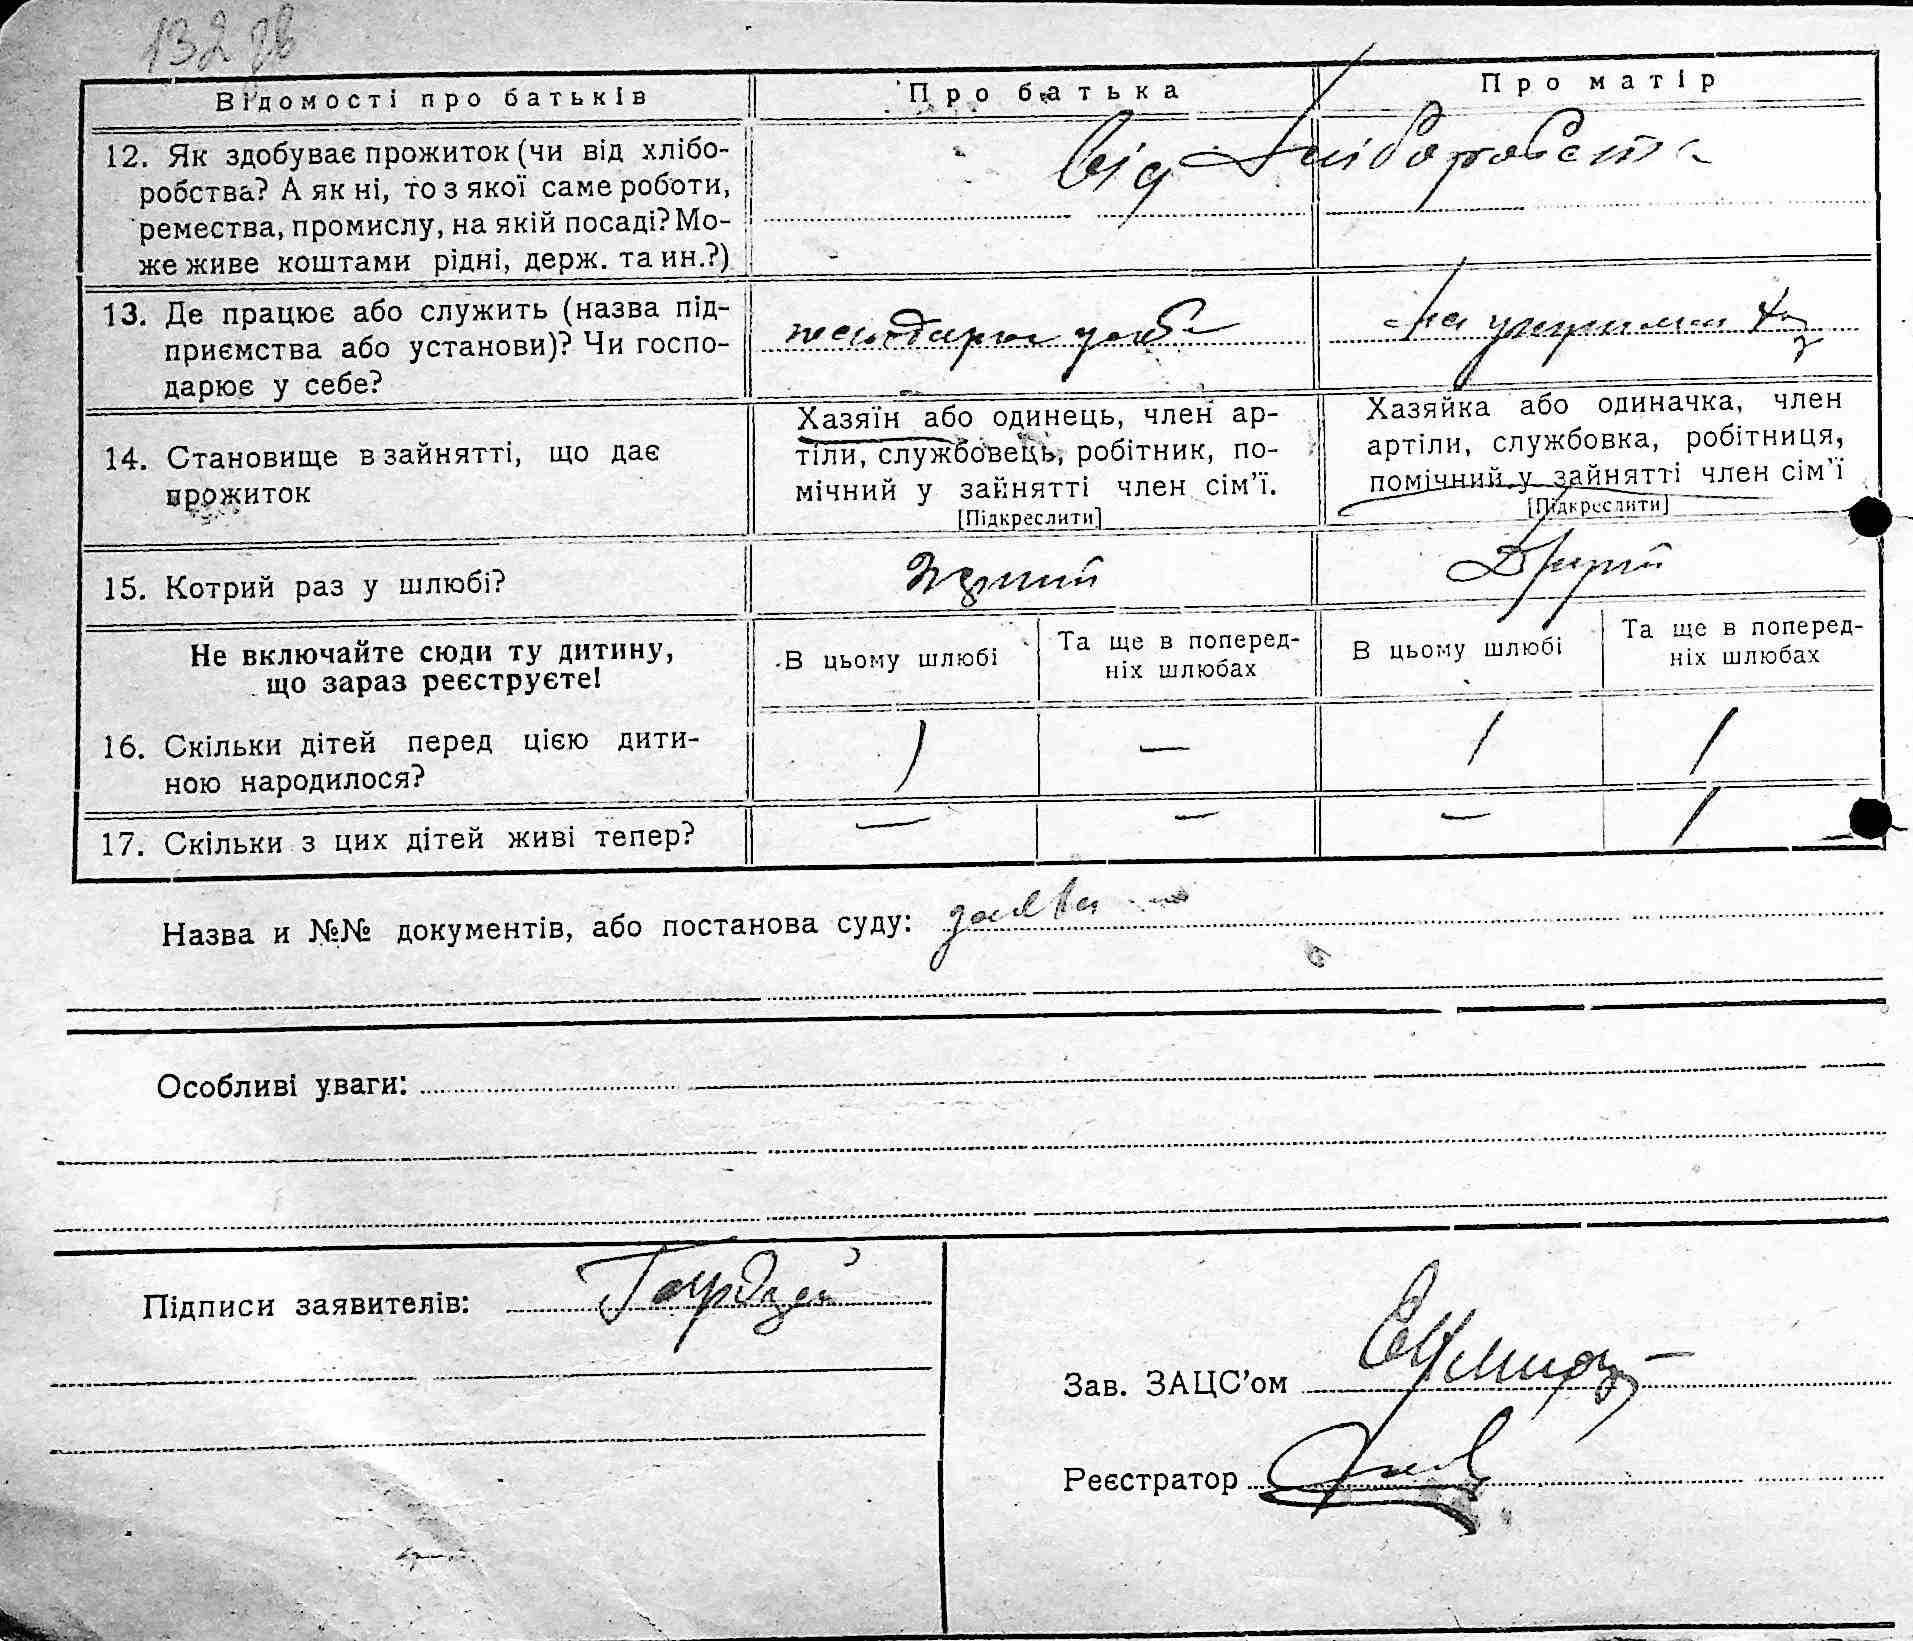 132 зв
Відомості про батьків
Про батька
Про матір
12. Як здобуває прожиток (чи від хлібо-
робства? А як ні, то з якої саме роботи,
ремества, промислу, на якій посаді? Мо-
же живе коштами рідні, держ. та ин.?)
від хліборобства
13. Де працює або служить (назва під-
приємства або установи)? Чи госпо-
дарює у себе?
на утриманні
14. Становище в зайнятті, що дає
прожиток
Хазяїн або одинець, член ар-
тіли, службовець, робітник, по-
мічний у зайнятті член сім'ї.
[Підкреслити]
Хазяйка або одиначка, член
артіли, службовка, робітниця,
помічний у зайнятті член сім'ї
[Підкреслити]
15. Котрий раз у шлюбі?
Перший
Другий
Не включайте сюди ту дитину,
що зараз реєструєте!
В цьому шлюбі
Та ще в поперед-
ніх шлюбах
В цьому шлюбі
Та ще в поперед-
ніх шлюбах
16. Скільки дітей перед цією дити-
ною народилося?
1 — 1 1
17. Скільки з цих дітей живі тепер?
— — — 1
Назва и №№ документів, або постанова суду: заява
Особливі уваги:
Підписи заявителів:
Зав. ЗАЦС'ом
Реєстратор